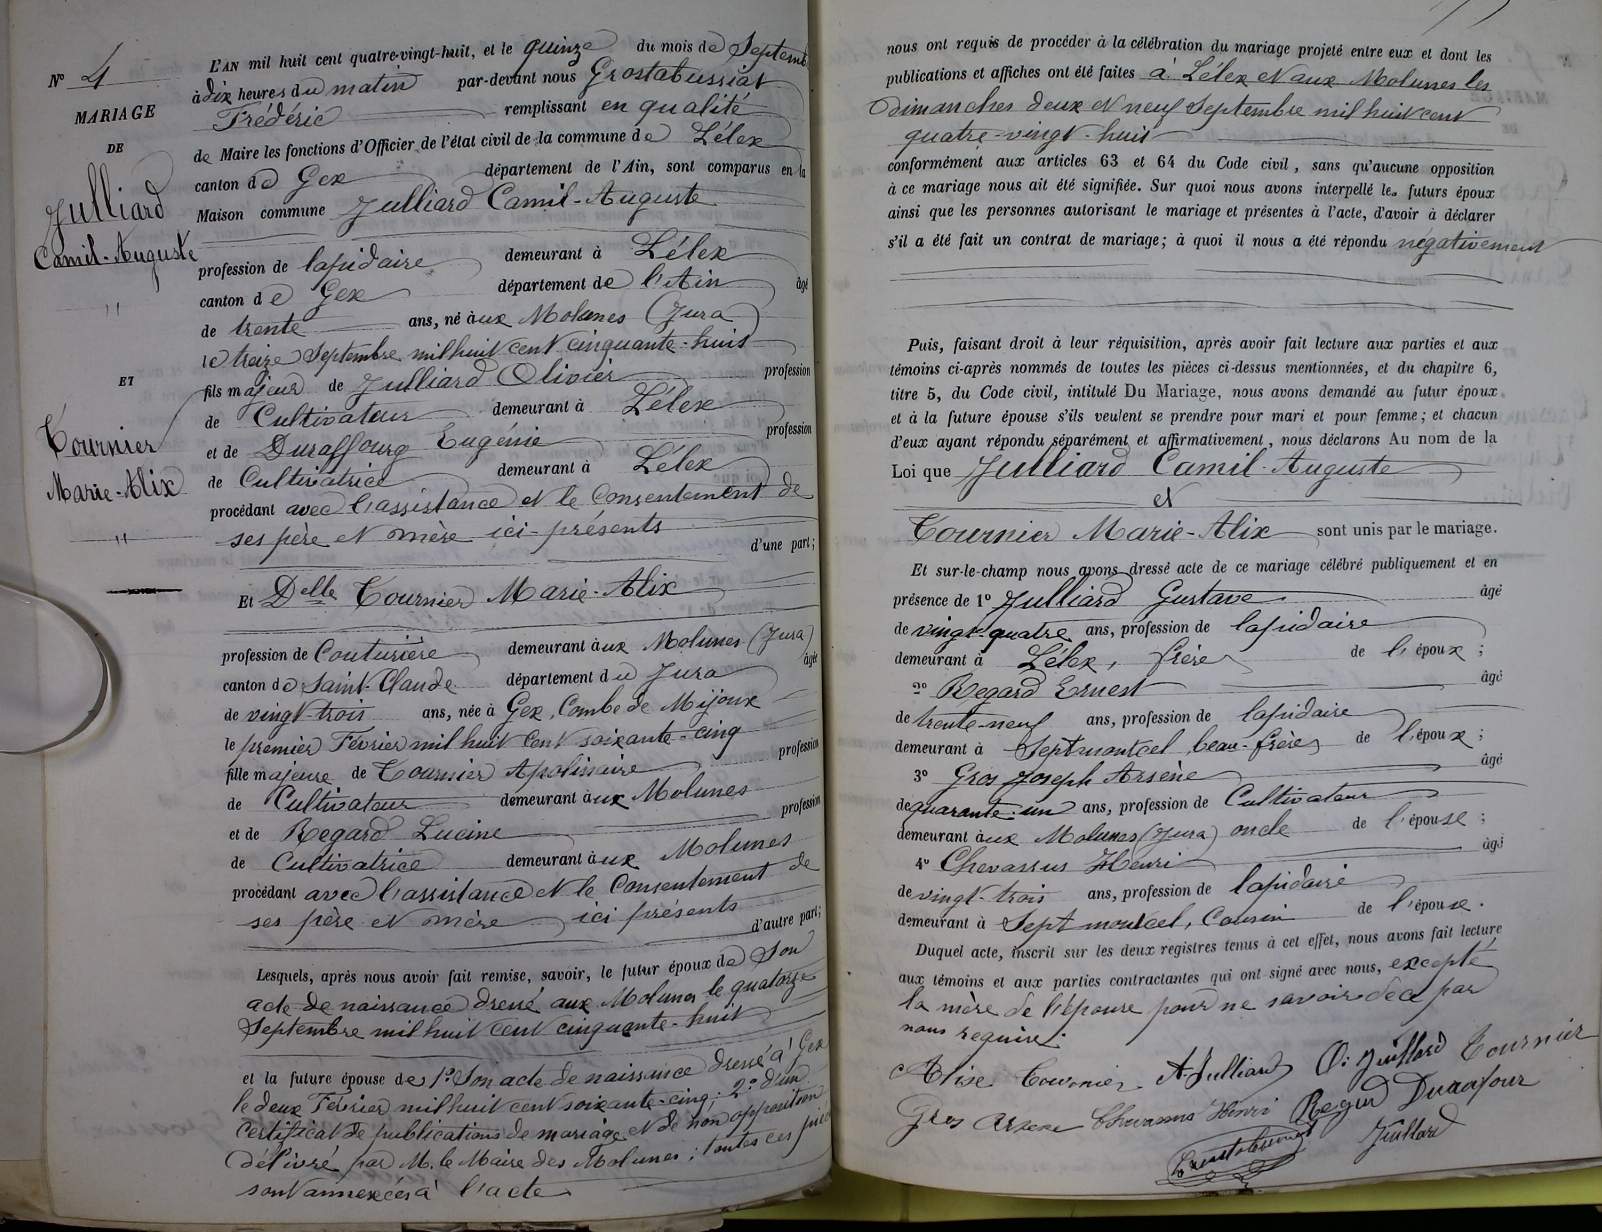 N° 4
MARIAGE
DE
Julliard
Camil-Auguste
"
ET
Tournier
Marie-Alix
"
L'AN mil huit cent quatre-vingt-huit, et le quinze du mois de Septemb
à dix heures du matin par-devant nous Grostabussiat
Frédéric remplissant en qualité
de Maire les fonctions d'Officier de l'état civil de la commune de Lélex
canton de Gex département de l'Ain, sont comparus en la
Maison commune Julliard Camil-Auguste
profession de lapidaire demeurant à Lélex
canton de Gex département de l'Ain âgé
de trente ans, né aux Molunes (Jura)
le treize Septembre mil huit cent cinquante-huit
fils majeur de Julliard Olivier profession
de Cultivateur demeurant à Lélex
et de Duraffourg Eugénie profession
de Cultivatrice demeurant à Lélex
procédant avec l'assistance et le Consentement de
ses père et mère ici-présents
d'une part;
Et Delle Tournier Marie-Alix
profession de Couturière demeurant aux Molunes (Jura)
canton de Saint-Claude département du Jura âgée
de vingt-trois ans, née à Gex, Combe de Mijoux
le premier Février mil huit cent soixante-cinq
fille majeure de Tournier Apolinaire profession
de Cultivateur demeurant aux Molunes
et de Regard Lucine profession
de Cultivatrice demeurant aux Molunes
procédant avec l'assistance et le Consentement de
ses père et mère ici présents
d'autre part;
Lesquels, après nous avoir fait remise, savoir, le futur époux de Son
acte de naissance dressé aux Molunes le quatorze
Septembre mil huit cent cinquante-huit
et la future épouse de 1° Son acte de naissance dressé à Gex
le deux Février mil huit cent soixante-cinq; 2° d'un
certificat de publications de mariage et de non opposition
délivré par M. le Maire des Molunes; toutes ces pièces
sont annexées à l'acte
nous ont requis de procéder à la célébration du mariage projeté entre eux et dont les
publications et affiches ont été faites à Lélex et aux Molunes les
dimanches deux et neuf Septembre mil huit cent
quatre-vingt-huit
conformément aux articles 63 et 64 du Code civil, sans qu'aucune opposition
à ce mariage nous ait été signifiée. Sur quoi nous avons interpellé les futurs époux
ainsi que les personnes autorisant le mariage et présentes à l'acte, d'avoir à déclarer
s'il a été fait un contrat de mariage; à quoi il nous a été répondu négativement
Puis, faisant droit à leur réquisition, après avoir fait lecture aux parties et aux
témoins ci-après nommés de toutes les pièces ci-dessus mentionnées, et du chapitre 6,
titre 5, du Code civil, intitulé Du Mariage, nous avons demandé au futur époux
et à la future épouse s'ils veulent se prendre pour mari et pour femme; et chacun
d'eux ayant répondu séparément et affirmativement, nous déclarons Au nom de la
Loi que Julliard Camil-Auguste
et
Tournier Marie-Alix sont unis par le mariage.
Et sur-le-champ nous avons dressé acte de ce mariage célébré publiquement et en
présence de 1° Julliard Gustave âgé
de vingt-quatre ans, profession de lapidaire
demeurant à Lélex, frère de l'époux;
2° Regard Ernest âgé
de trente-neuf ans, profession de lapidaire
demeurant à Septmontcel beau-frère de l'époux;
3° Gros Joseph Arsène âgé
de quarante-un ans, profession de Cultivateur
demeurant aux Molunes (Jura) oncle de l'épouse;
4° Chevassus Henri âgé
de vingt-trois ans, profession de lapidaire
demeurant à Septmontcel, Cousin de l'épouse.
Duquel acte, inscrit sur les deux registres tenus à cet effet, nous avons fait lecture
aux témoins et aux parties contractantes qui ont signé avec nous, excepté
la mère de l'épouse pour ne savoir de ce par
nous requise.
Alise Tournier A. Julliard O. Juillard Tournier
Gros Arsene Chevassus Henri Regard Durafour
Grostabussiat Juillard